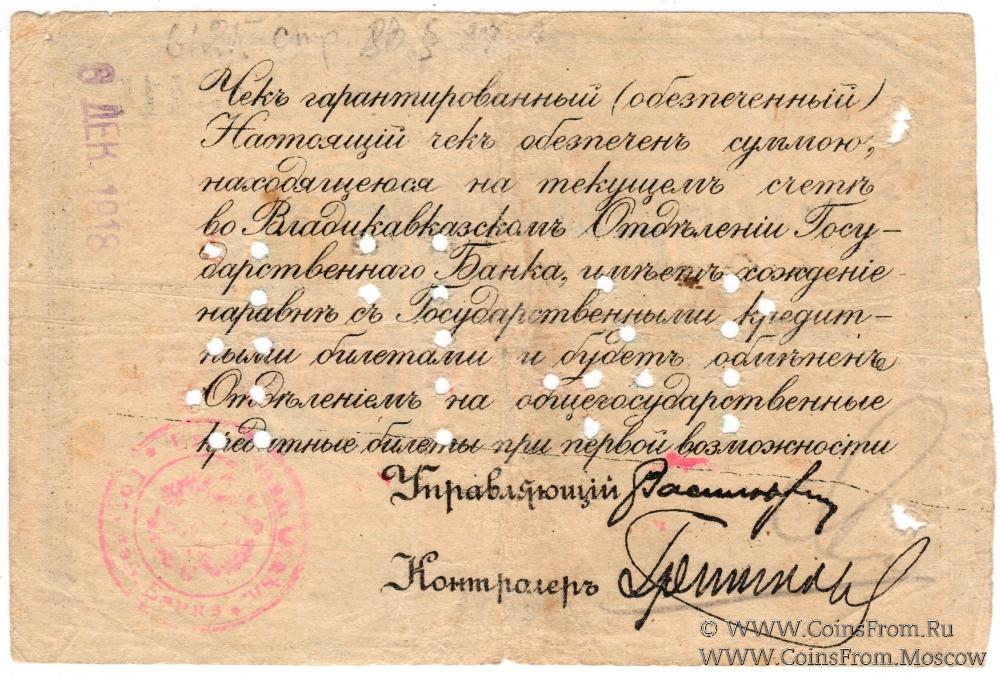 6 ДЕК. 1918
Чекъ гарантированный (обезпеченный)
Настоящій чекъ обезпеченъ суммою,
находящеюся на текущемъ счетѣ
во Владикавказскомъ Отдѣленіи Госу-
дарственнаго Банка, имѣетъ хожденіе
наравнѣ съ Государственными кредит-
ными билетами и будетъ обмѣненъ
Отдѣленіемъ на общегосударственные
кредитные билеты при первой возможности
Управляющій
Контролеръ
© WWW.CoinsFrom.Ru
WWW.CoinsFrom.Moscow